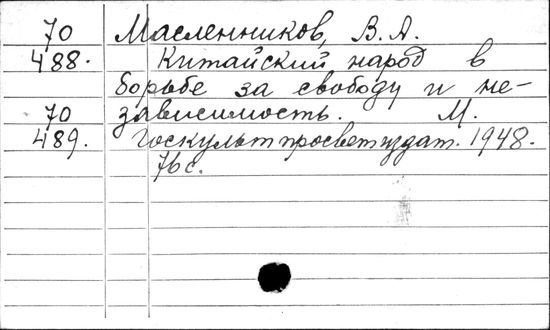 70 Масленников, В. А.
488. Китайский народ в
борьбе за свободу и не-
70 зависимость. М.
489. Госкультпросветиздат. 1948.
76 с.